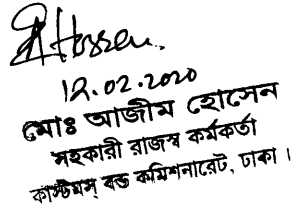 Hossen
12.02.2020
মোঃ আজীম হোসেন
সহকারী রাজস্ব কর্মকর্তা
কাস্টমস্ বন্ড কমিশনারেট, ঢাকা।